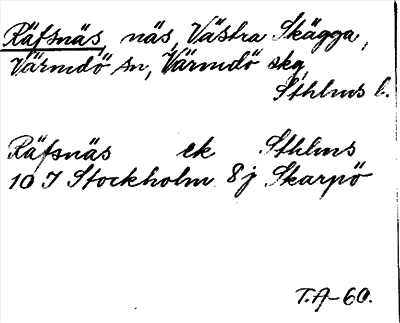 Räfsnäs, näs, Västra Skägga,
Värmdö sn, Värmdö skg,
Sthlms l.
Räfsnäs ek Sthlms
10 I Stockholm 8j Skarpö
T.A-60.